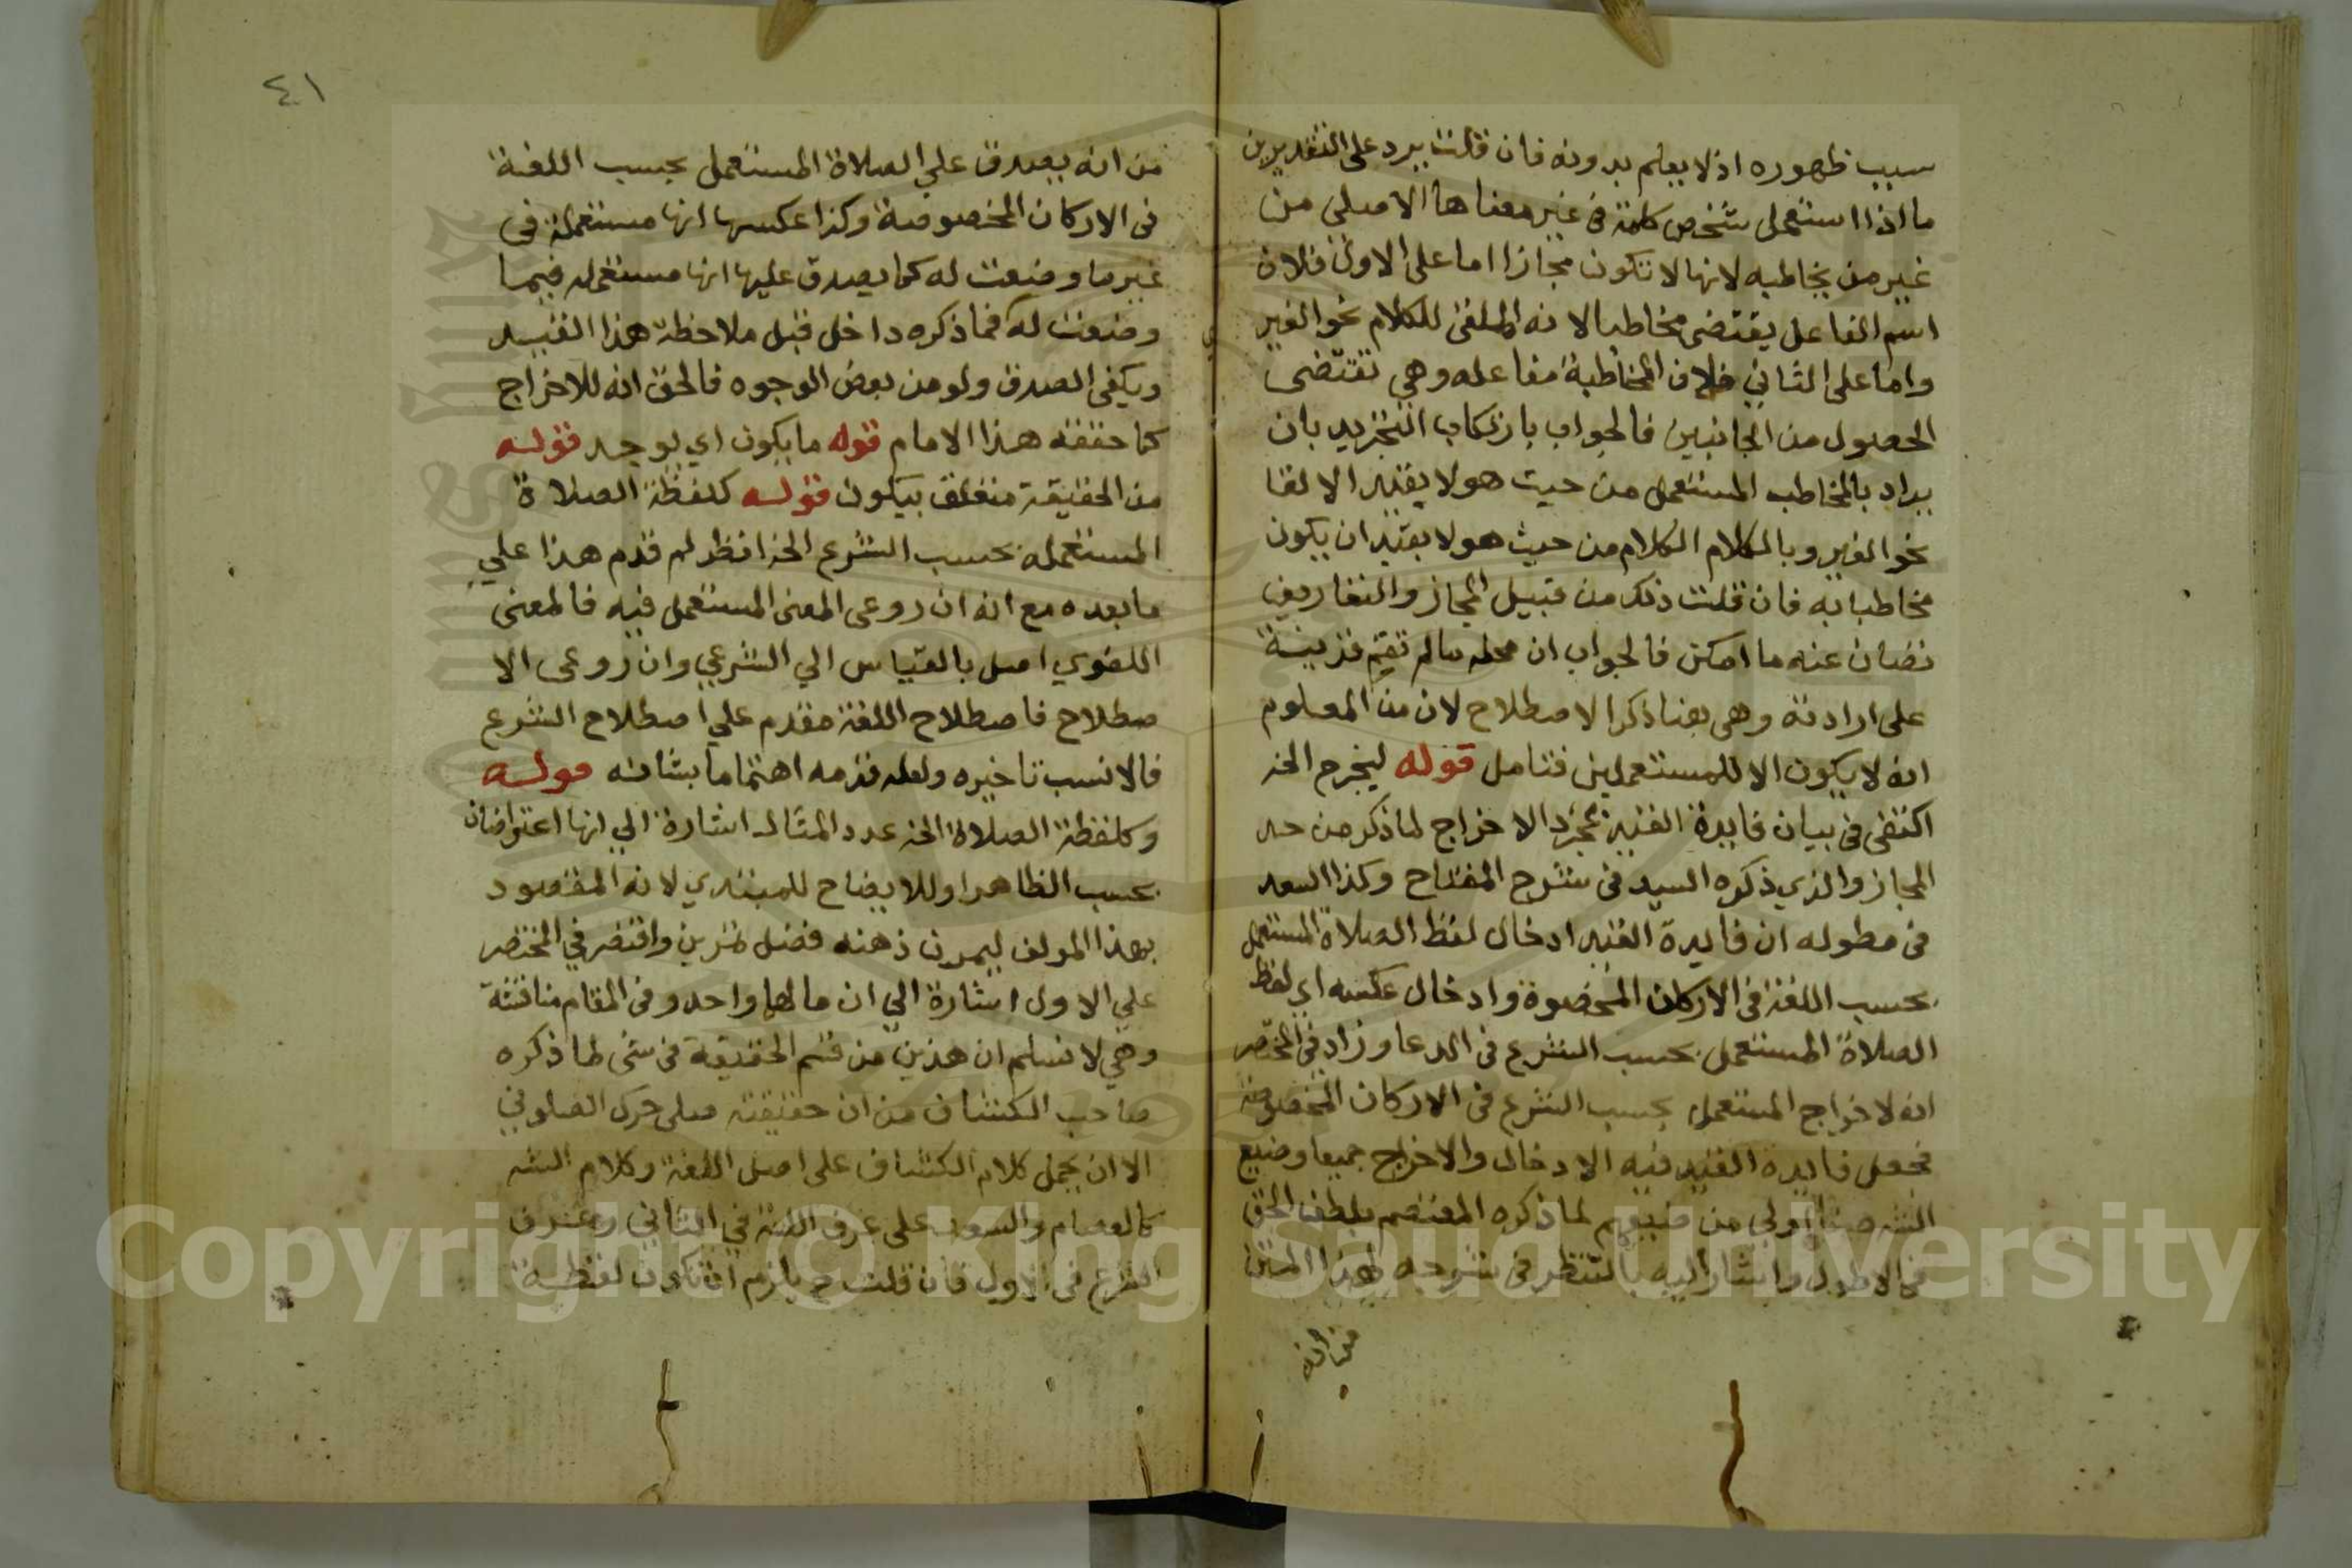 سبب ظهوره اذ لا يعلم بدونه فان قلت يرد على التقديرين
ما اذا استعمل شخص كلمة في غير معناها الاصلي من
غير من يخاطبه لانها لا تكون مجازا اما على الاول فلان
اسم الفاعل يقتضى مخاطبا لانه الملقى للكلام نحو الغير
واما على الثاني فلان المخاطبة مفاعله وهي تقتضى
الحصول من الجانبين فالجواب بارتكاب التجريد بان
يراد بالمخاطب المستعمل من حيث هو لا بقيد الالقا
نحو الغير وبالكلام الكلام من حيث هو لا بقيد ان يكون
مخاطبا به فان قلت ذلك من قبيل المجاز والتعاريف
تصان عنه ما امكن فالجواب ان محله مالم تقم قرينة
على ارادته وهى هنا ذكر الاصطلاح لان من المعلوم
انه لا يكون الا للمستعملين فتامل قوله ليخرج الخ
اكتفى في بيان فايدة القيد بمجرد الاخراج لما ذكر من حد
المجاز والذي ذكره السيد في شرح المفتاح وكذا السعد
في مطوله ان فايدة القيد ادخال لفظ الصلاة المستعمل
بحسب اللغة في الاركان المخصوصة وادخال عكسه اي لفظ
الصلاة المستعمل بحسب الشرع في الدعا وزاد في المختصر
انه لاخراج المستعمل بحسب الشرع في الاركان المخصوصة
فجعل فايدة القيد فيه الادخال والاخراج جميعا وصنيع
الشه هنا اولى من صنيعهم لما ذكره المعتصم بلطف الحق
في الاطول واشار اليه بالتنظر في شرحه لهذا المتن
من انه
٤١
من انه يصدق علي الصلاة المستعمل بحسب اللغة
في الاركان المخصوصة وكذا عكسها انها مستعملة في
غير ما وضعت له كما يصدق عليها انها مستعمله فيما
وضعت له فما ذكره داخل قبل ملاحظة هذا القيد
ويكفى الصدق ولو من بعض الوجوه فالحق انه للاخراج
كما حققه هذا الامام قوله ما يكون اي يوجد قوله
من الحقيقة متعلق بيكون قوله كلفظة الصلاة
المستعمله بحسب الشرع الخ انظر لم قدم هذا علي
ما بعده مع انه ان روعى المعنى المستعمل فيه فالمعنى
اللغوي اصل بالقياس الي الشرعي وان روعى الا
صطلاح فاصطلاح اللغة مقدم علي اصطلاح الشرع
فالانسب تاخيره ولعله قدمه اهتماما بشانه قوله
وكلفظة الصلاة الخ عدد المثال اشارة الي انها اعتراضان
بحسب الظاهر او للايضاح للمبتدي لانه المقصود
بهذا المولف ليمرن ذهنه فضل تمرين واقتصر في المختصر
علي الاول اشارة الي ان مالهما واحد وفى المقام مناقشة
وهي لا نسلم ان هذين من قسم الحقيقة في شى لما ذكره
صاحب الكشاف من ان حقيقة صلى حرك الصلوين
الا ان يحمل كلام الكشاف على اصل اللغة وكلام الشه
كالعصام والسعد على عرف اللغة في الثاني وعرف
الشرع في الاول فان قلت ح يلزم ان تكون لفظة